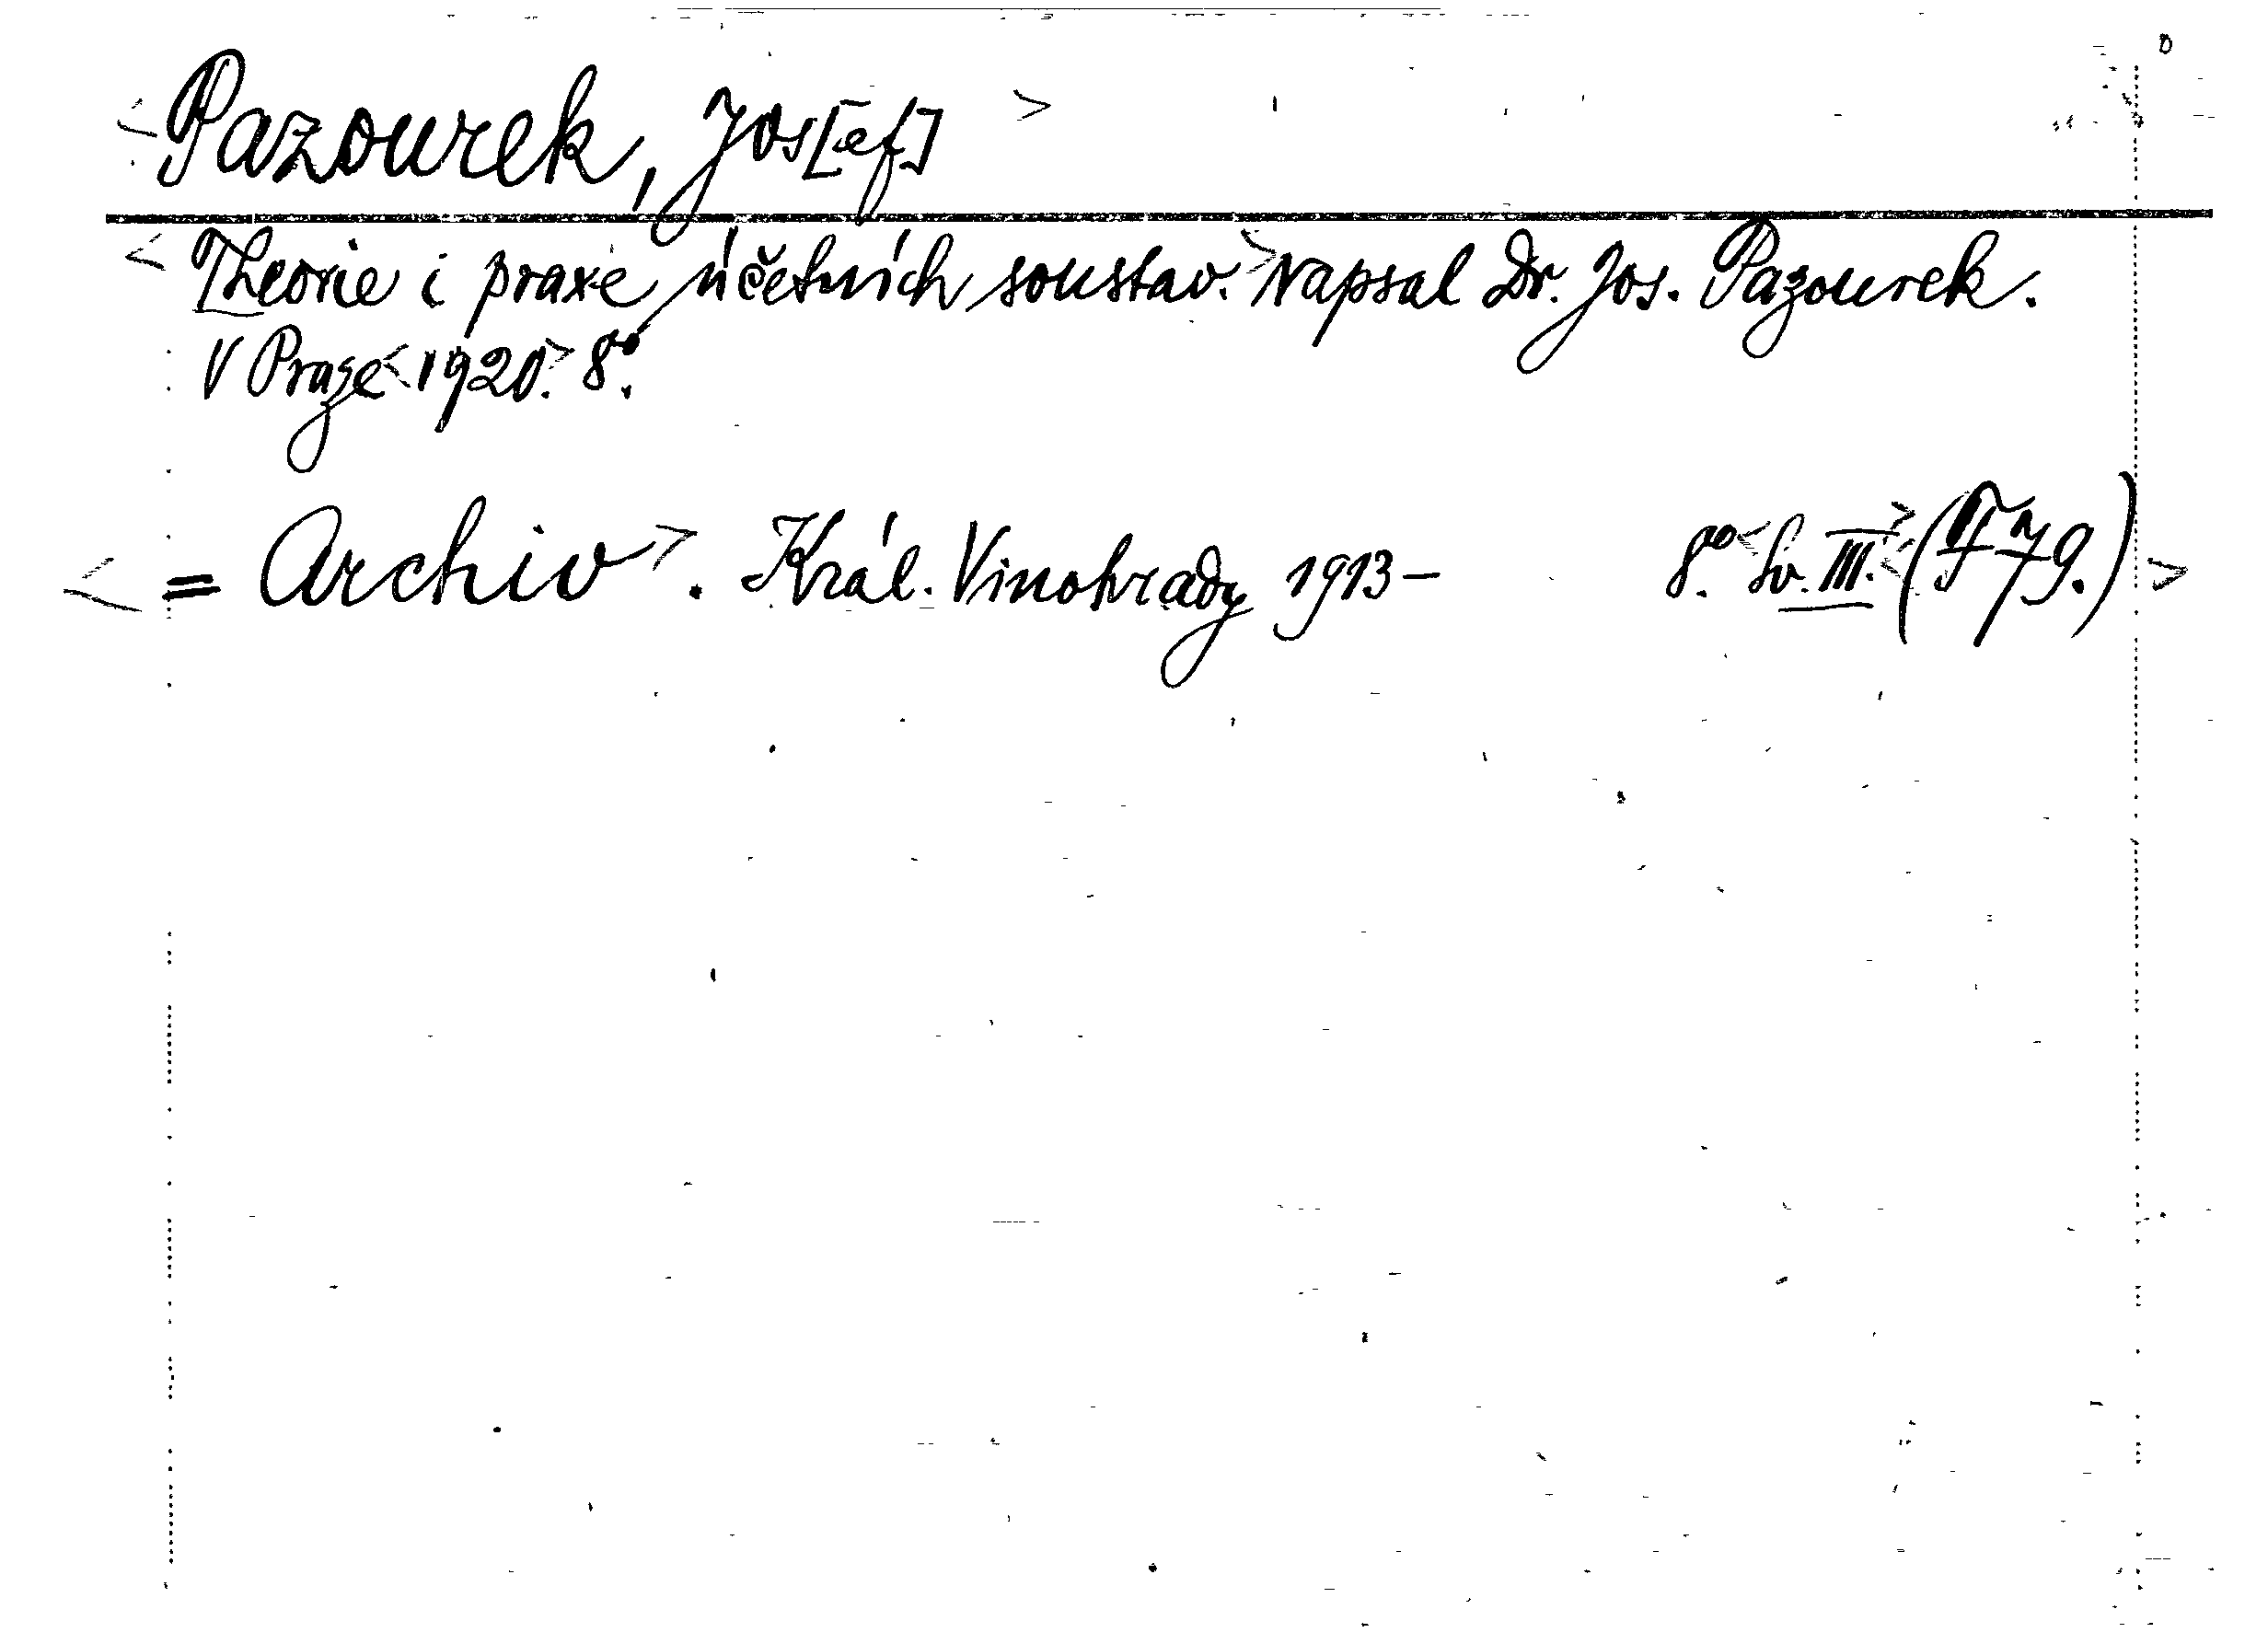 <Pazourek, Jos[ef]>
<Theorie i praxe účetních soustav.> Napsal Dr. Jos. Pazourek.
V Praze <1920.> 8º.
<= Archiv>. Král. Vinohrady 1913– 8º. <Sv. III.> <(F 79.)>